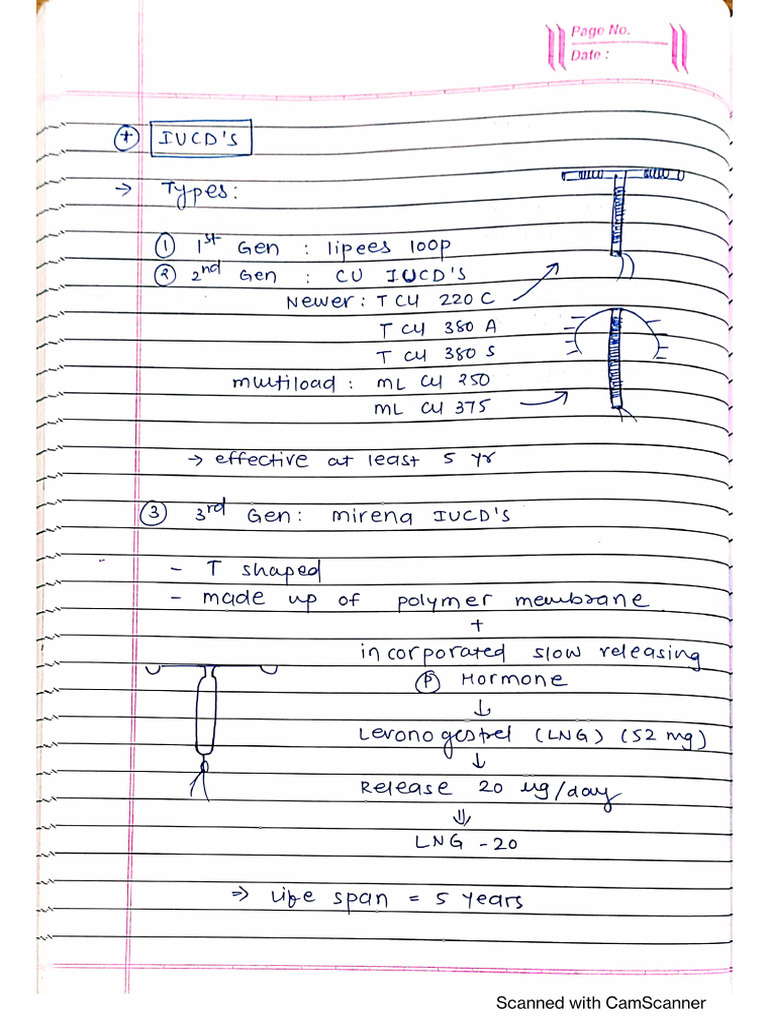 Page No.
Date :
+ IUCD's
→ Types:
① 1st Gen : lipees loop
② 2nd Gen : CU IUCD's
Newer : T CU 220 C
T CU 380 A
T CU 380 S
multiload : ML CU 250
ML CU 375
→ effective at least 5 yr
③ 3rd Gen: mirena IUCD's
- T shaped
- made up of polymer membrane
+
incorporated slow releasing
Ⓟ Hormone
↓
Levonogestrel (LNG) (52 mg)
↓
Release 20 ug/day
⇓
LNG - 20
⇒ Life span = 5 years
Scanned with CamScanner